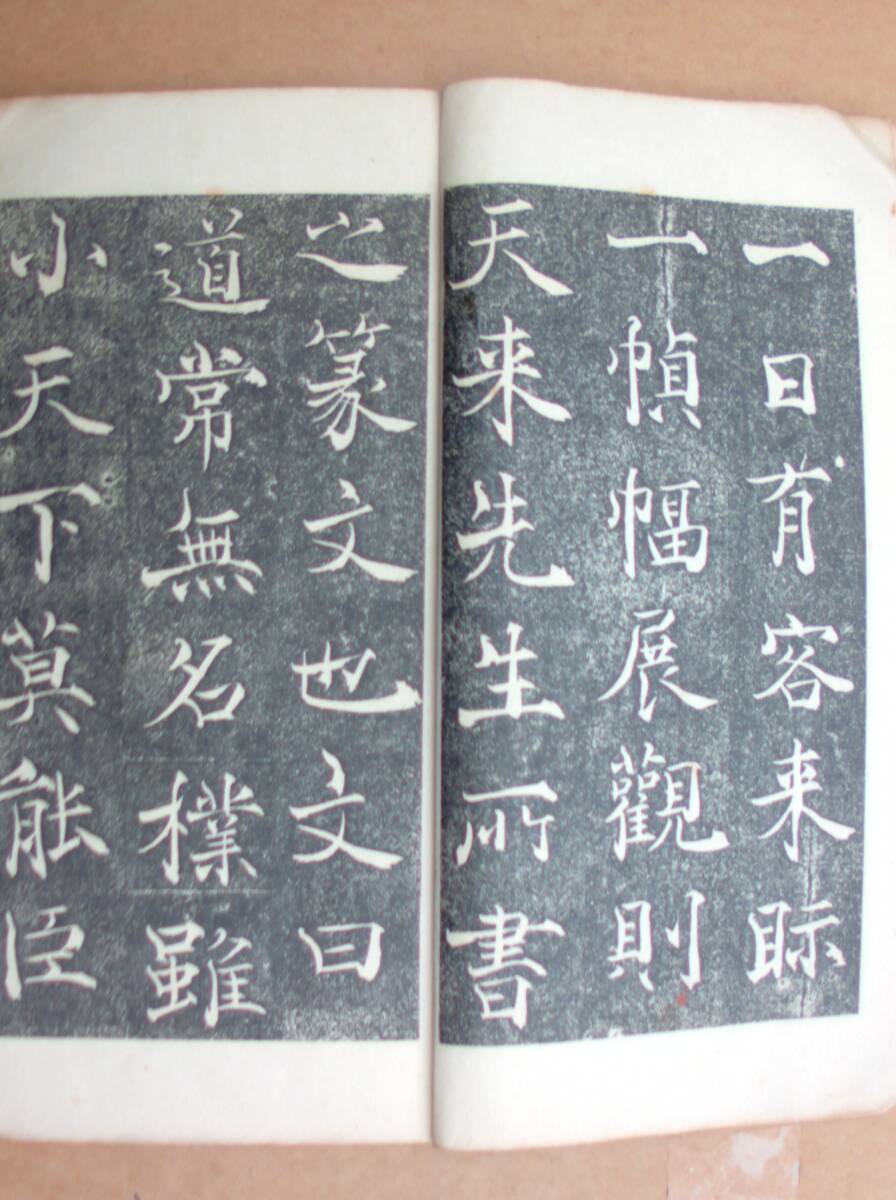 一日有客来眎
一幀幅展觀則
天来先生所書
之篆文也文曰
道常無名樸雖
小天下莫能臣